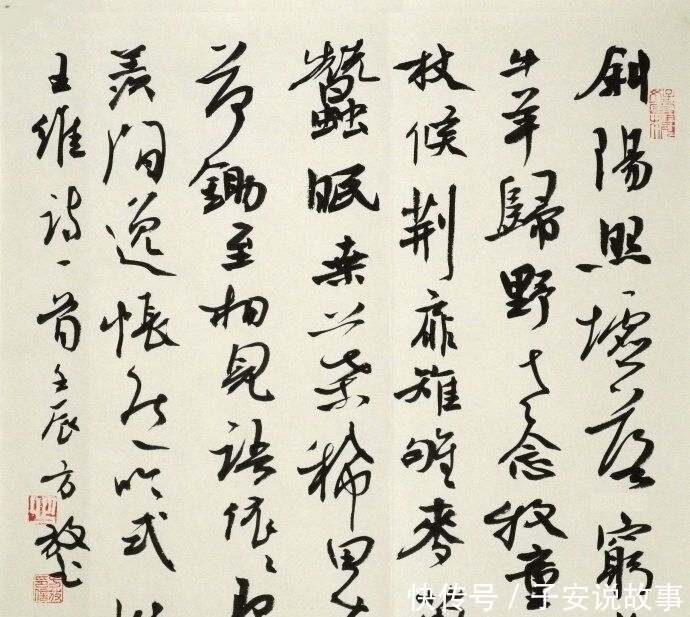 斜陽照墟落窮
牛羊歸野老念牧童
杖候荊扉雉雊麥
蠶眠桑葉稀田
荷鋤至相見語依依即
羨閒逸悵然吟式
王維詩一首壬辰方
快传号 / 子安说故事